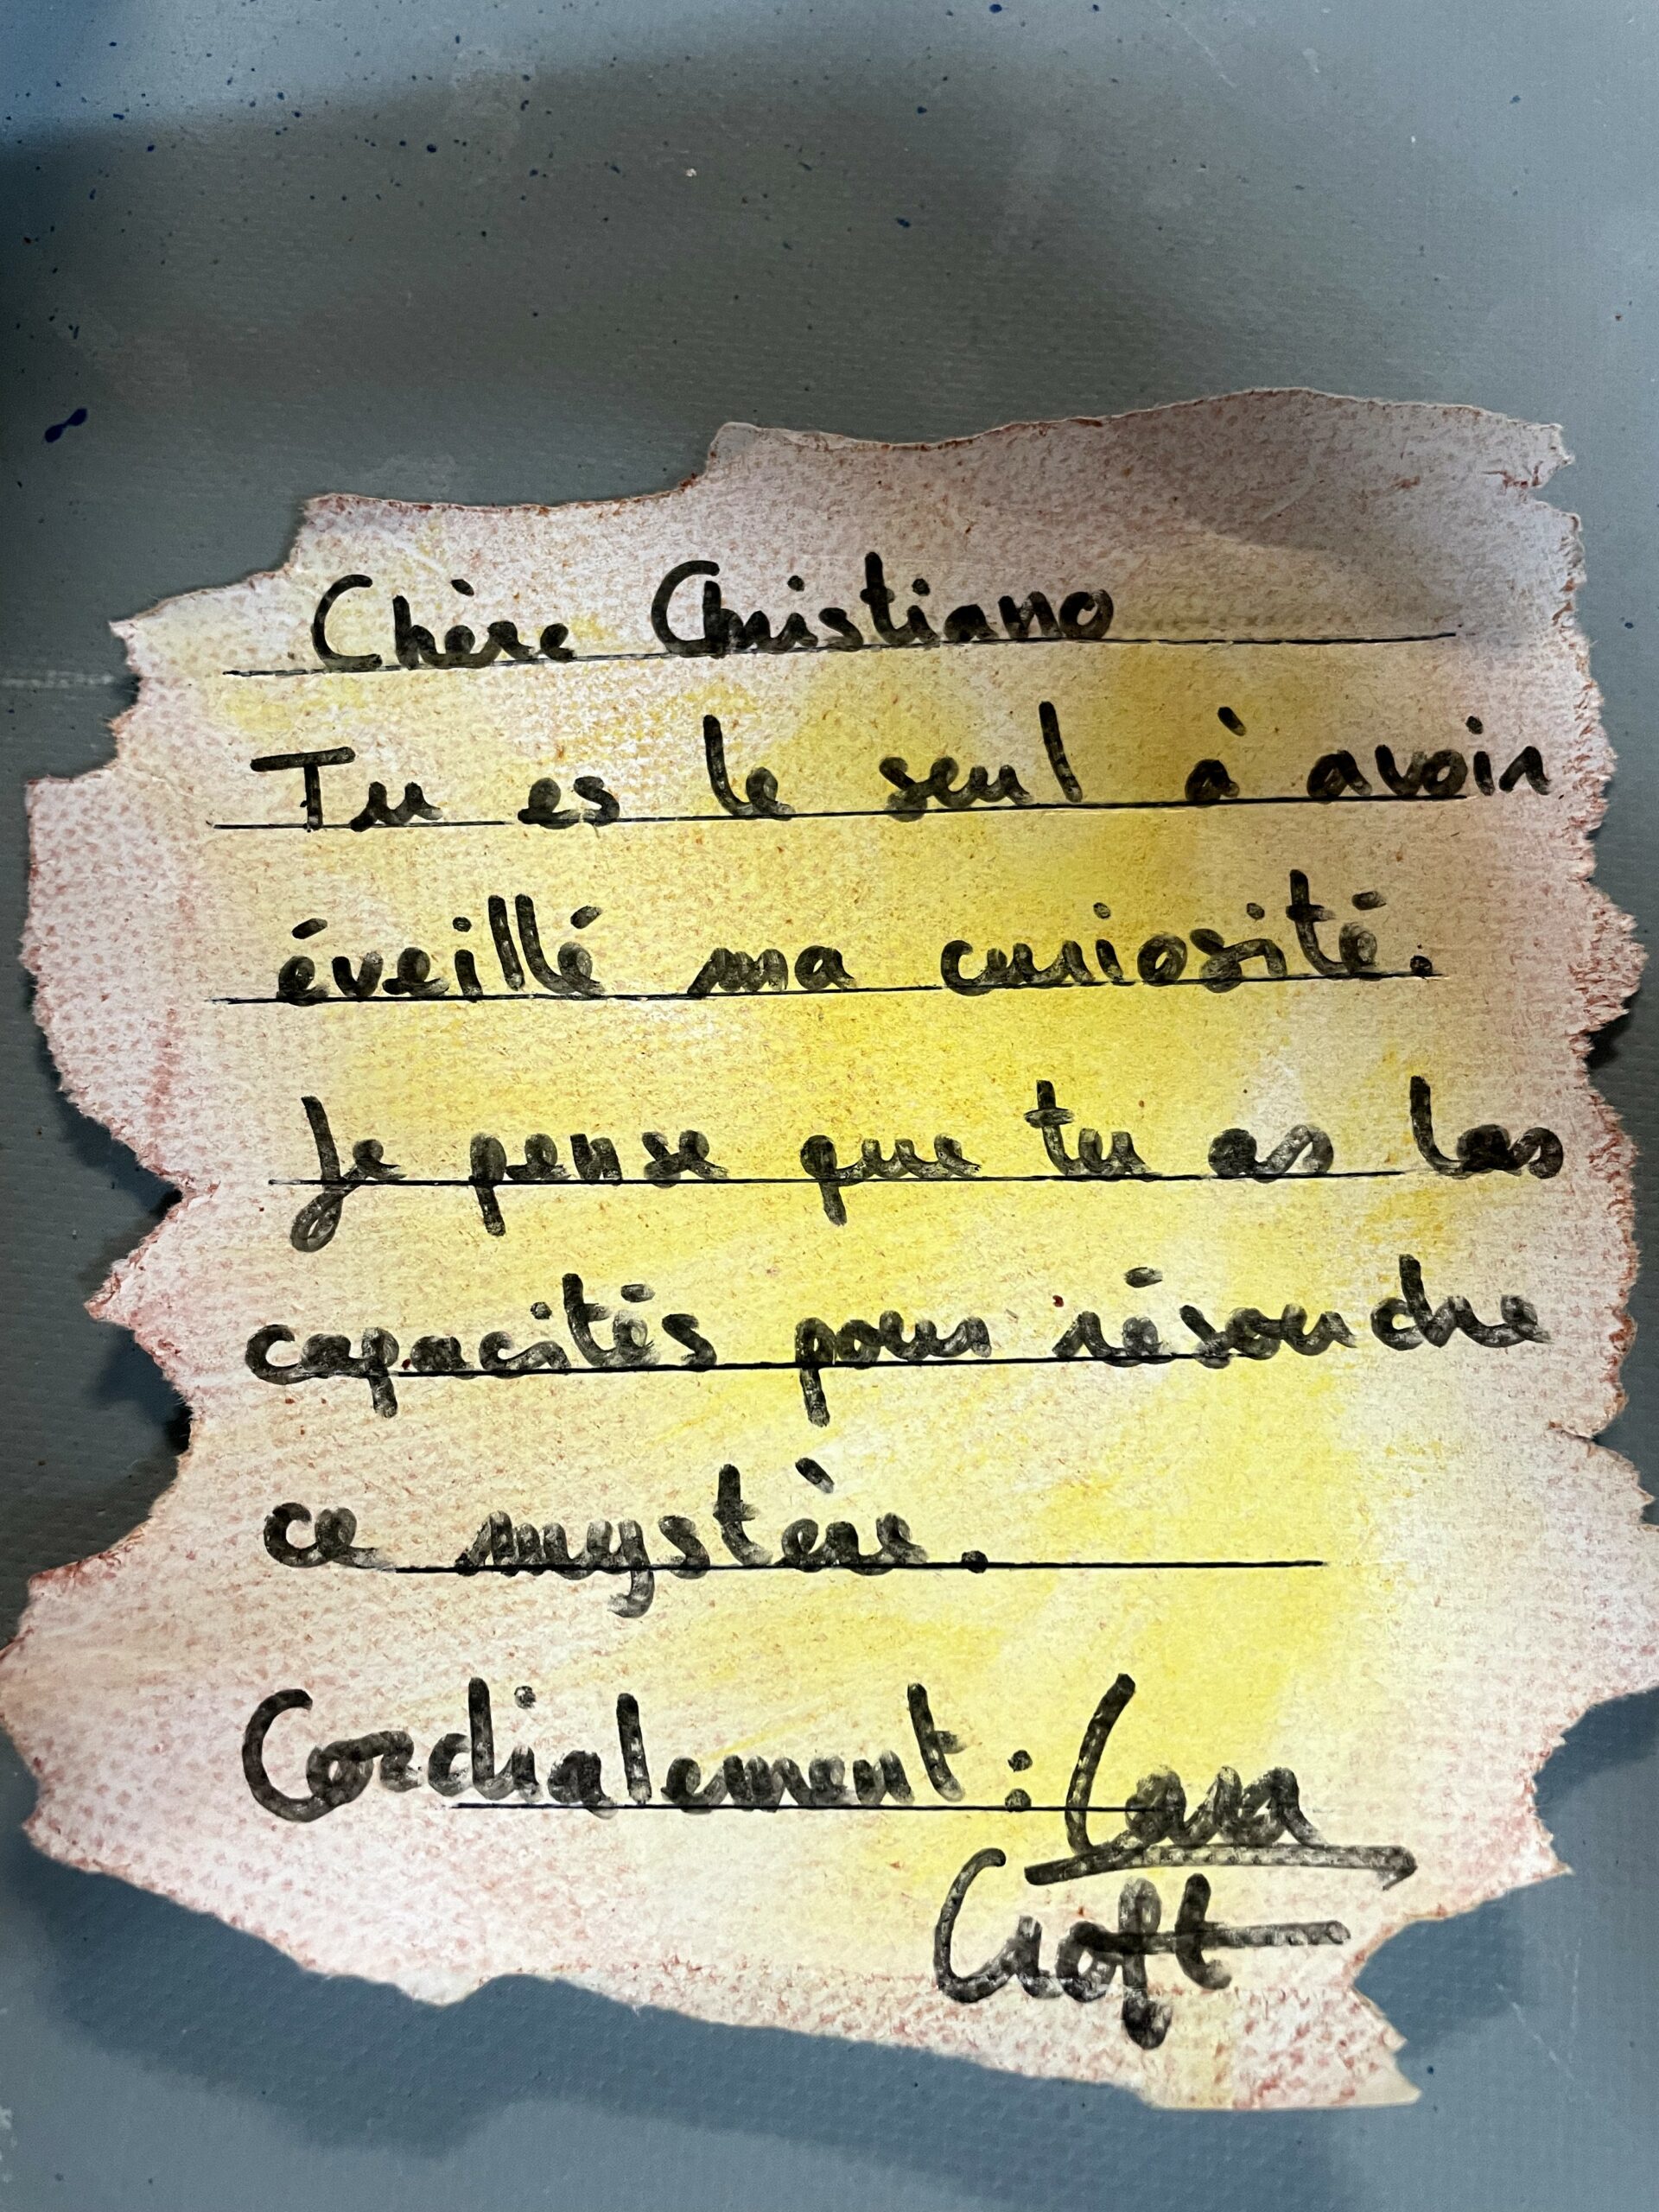 Chère Christiano
Tu es le seul à avoir
éveillé ma curiosité.
Je pense que tu as les
capacités pour résoudre
ce mystère.
Cordialement : Lara
Croft